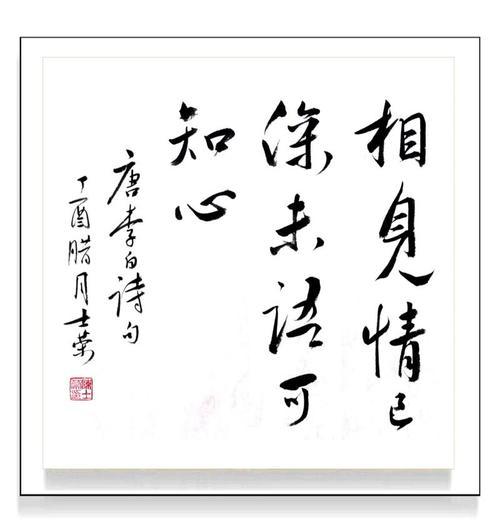 相見情已
深未語可
知心
唐李白詩句
丁酉腊月士荣